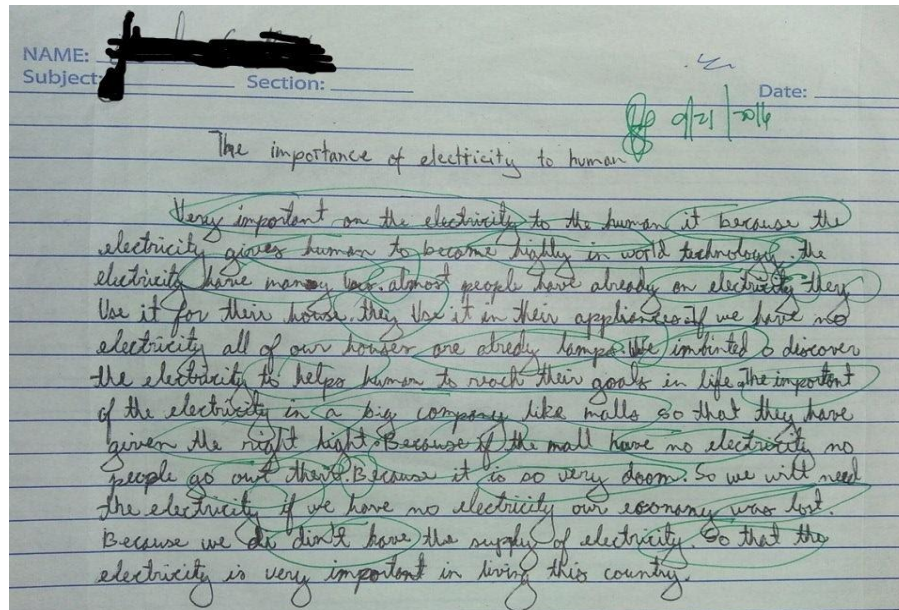 NAME:
Subject:
Section:
Date:
9/21/2016
The importance of electricity to human
Very important on the electricity to the human it because the
electricity gives human to become highly in world technology. the
electricity have many uses. almost people have already on electricity they
Use it for their house. they Use it in their appliances. if we have no
electricity all of our houses are alredy lamps. We imbinted o discover
the electricity to helps human to reach their goals in life. The important
of the electricity in a big company like malls so that they have
given the right light. Because if the mall have no electricity no
people go out there. Because it is so very doom. So we will need
the electricity if we have no electricity our economy was lost.
Because we din't have the supply of electricity. So that the
electricity is very important in living this country.